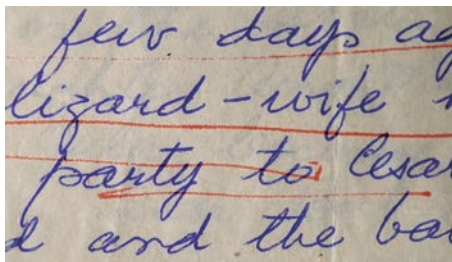 few days ag
lizard-wife
party to Cesar
d and the ba